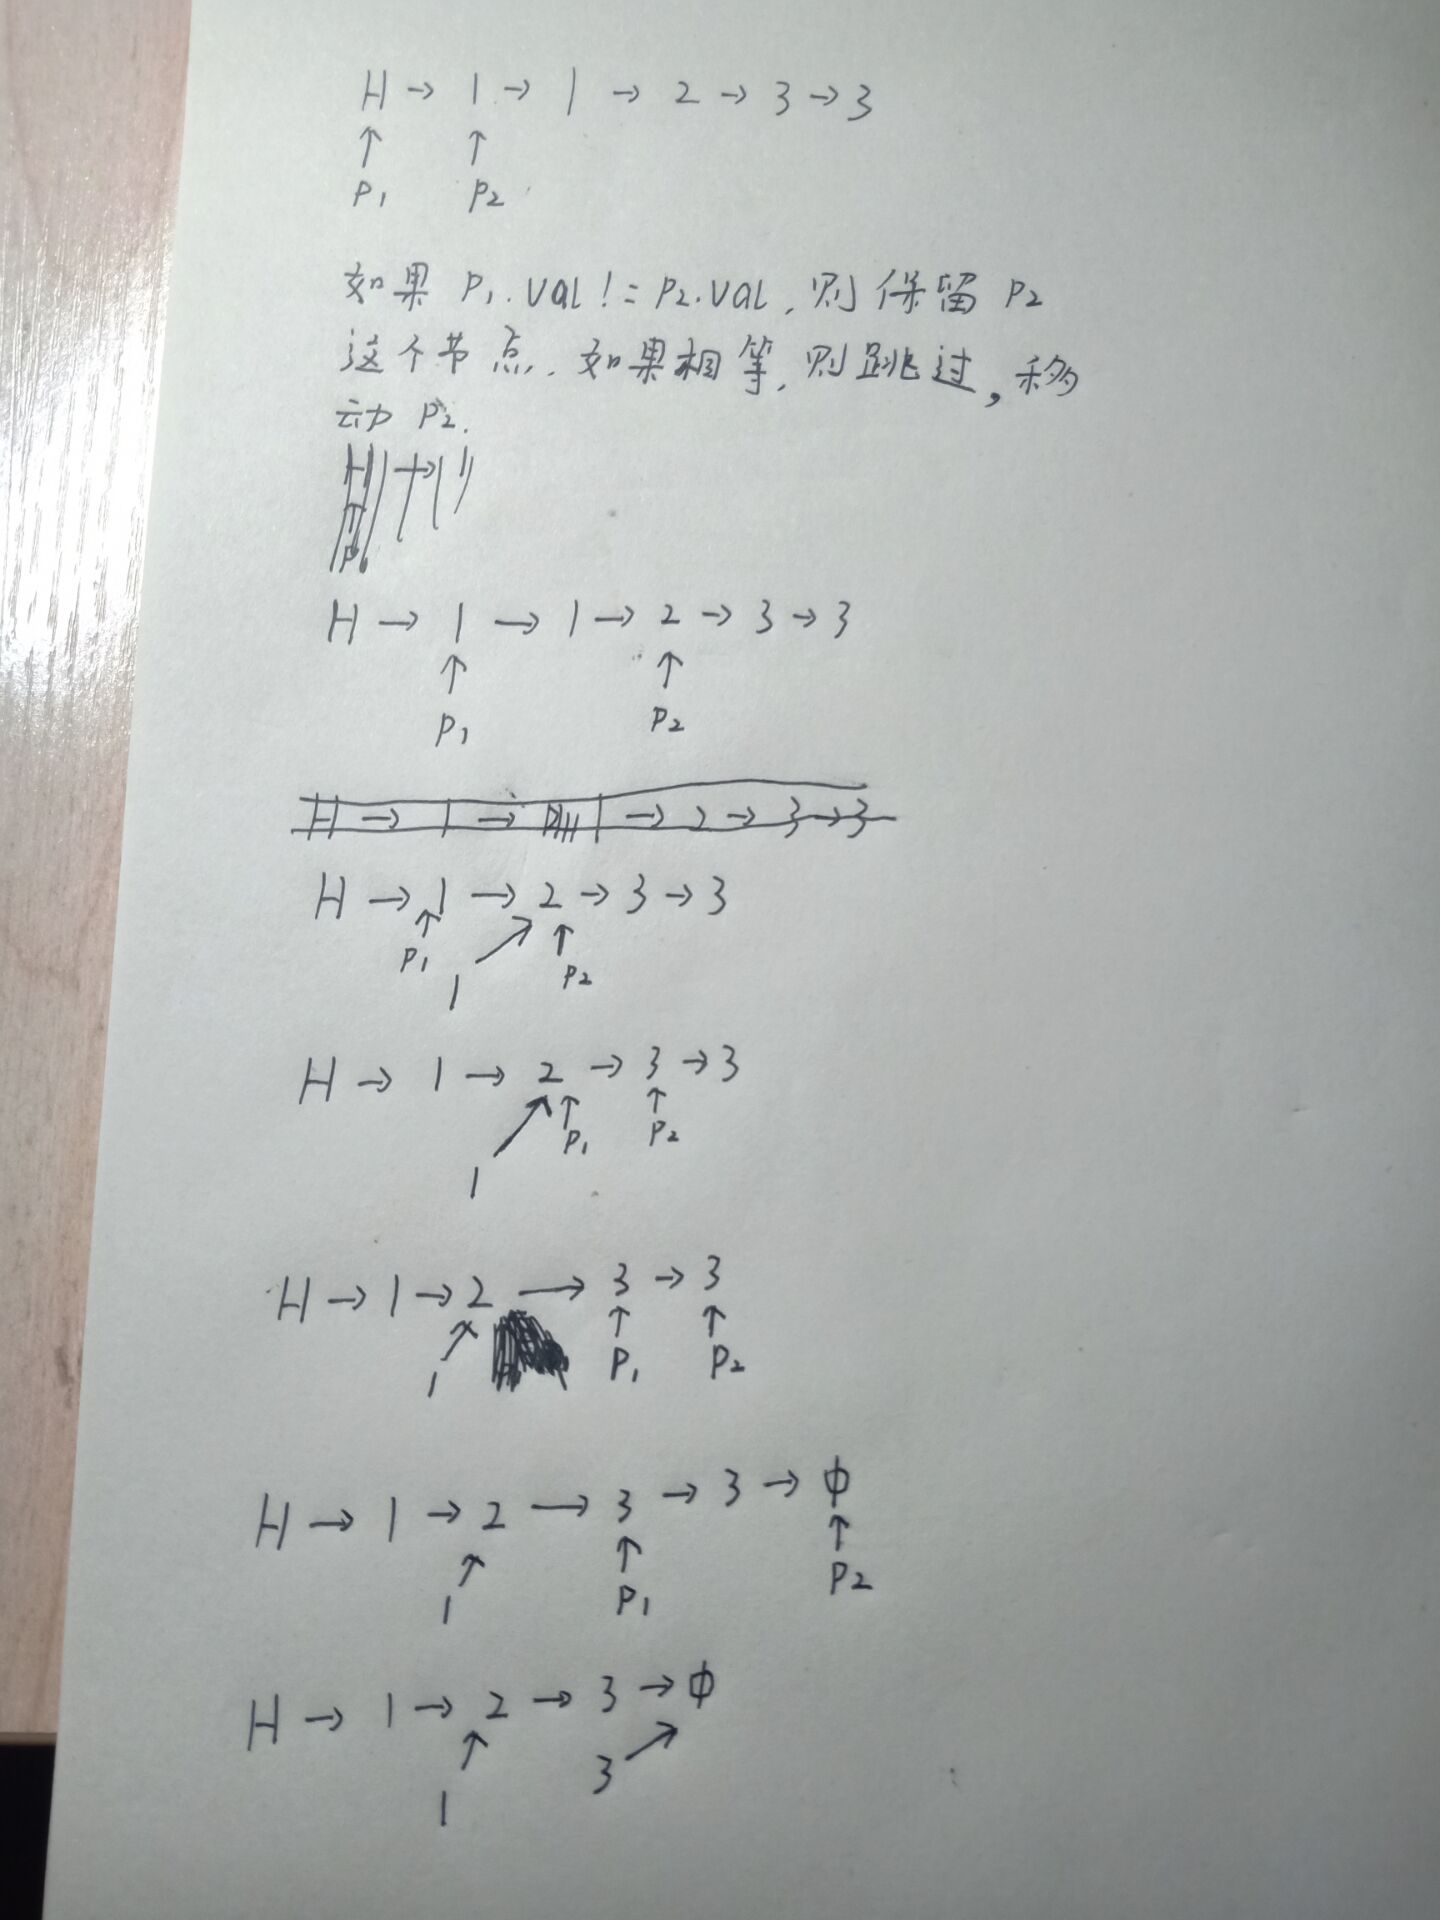 H → 1 → 1 → 2 → 3 → 3
↑ ↑
P₁ P₂
如果 P₁.val != P₂.val, 则保留 P₂
这个节点. 如果相等, 则跳过, 移
动 P₂.
H → 1 → 1 → 2 → 3 → 3
↑ ↑
P₁ P₂
H → 1 → 1 → 2 → 3 → 3
H → 1 → 2 → 3 → 3
↑ ↗ ↑
P₁ P₂
1
H → 1 → 2 → 3 → 3
↗ ↑ ↑
P₁ P₂
1
H → 1 → 2 → 3 → 3
↗ ↑ ↑
1 P₁ P₂
H → 1 → 2 → 3 → 3 → φ
↗ ↑ ↑
1 P₁ P₂
H → 1 → 2 → 3 → φ
↗ 3 ↗
1